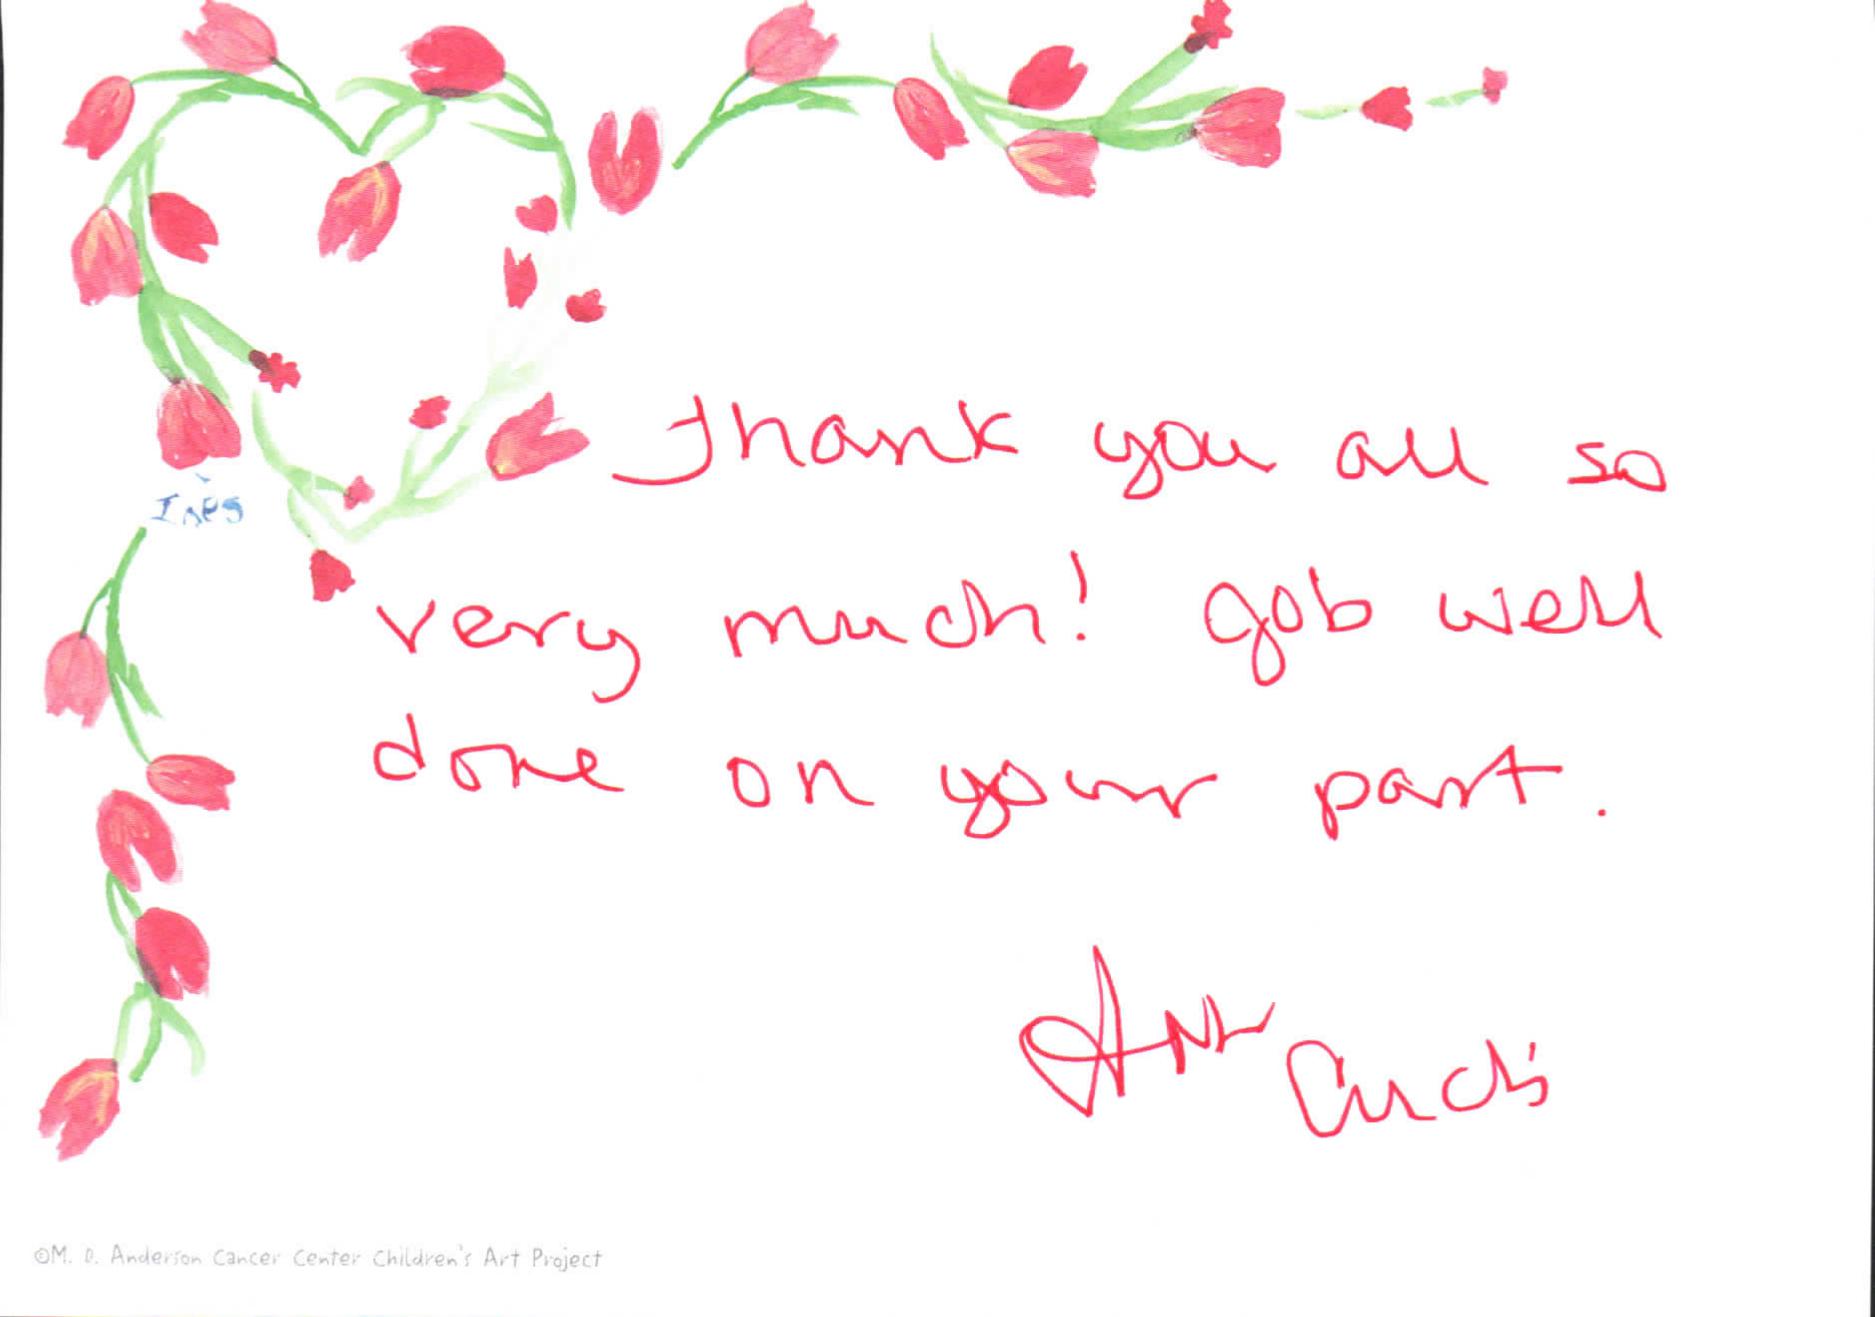 Thank you all so
Inès
very much! Job well
done on your part.
Ann
©M. D. Anderson Cancer Center Children's Art Project